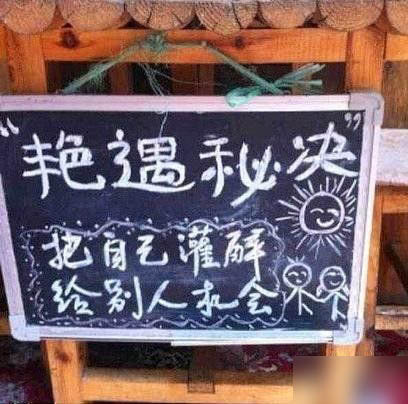 “艳遇秘决”
把自己灌醉
给别人机会